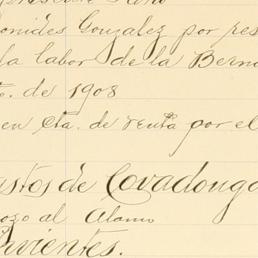 onides Gonzalez por pes
la labor de la Berna
to. de 1908
en cta. de renta por el
astos de Covadonga
pozo al Alamo
Sirvientes.